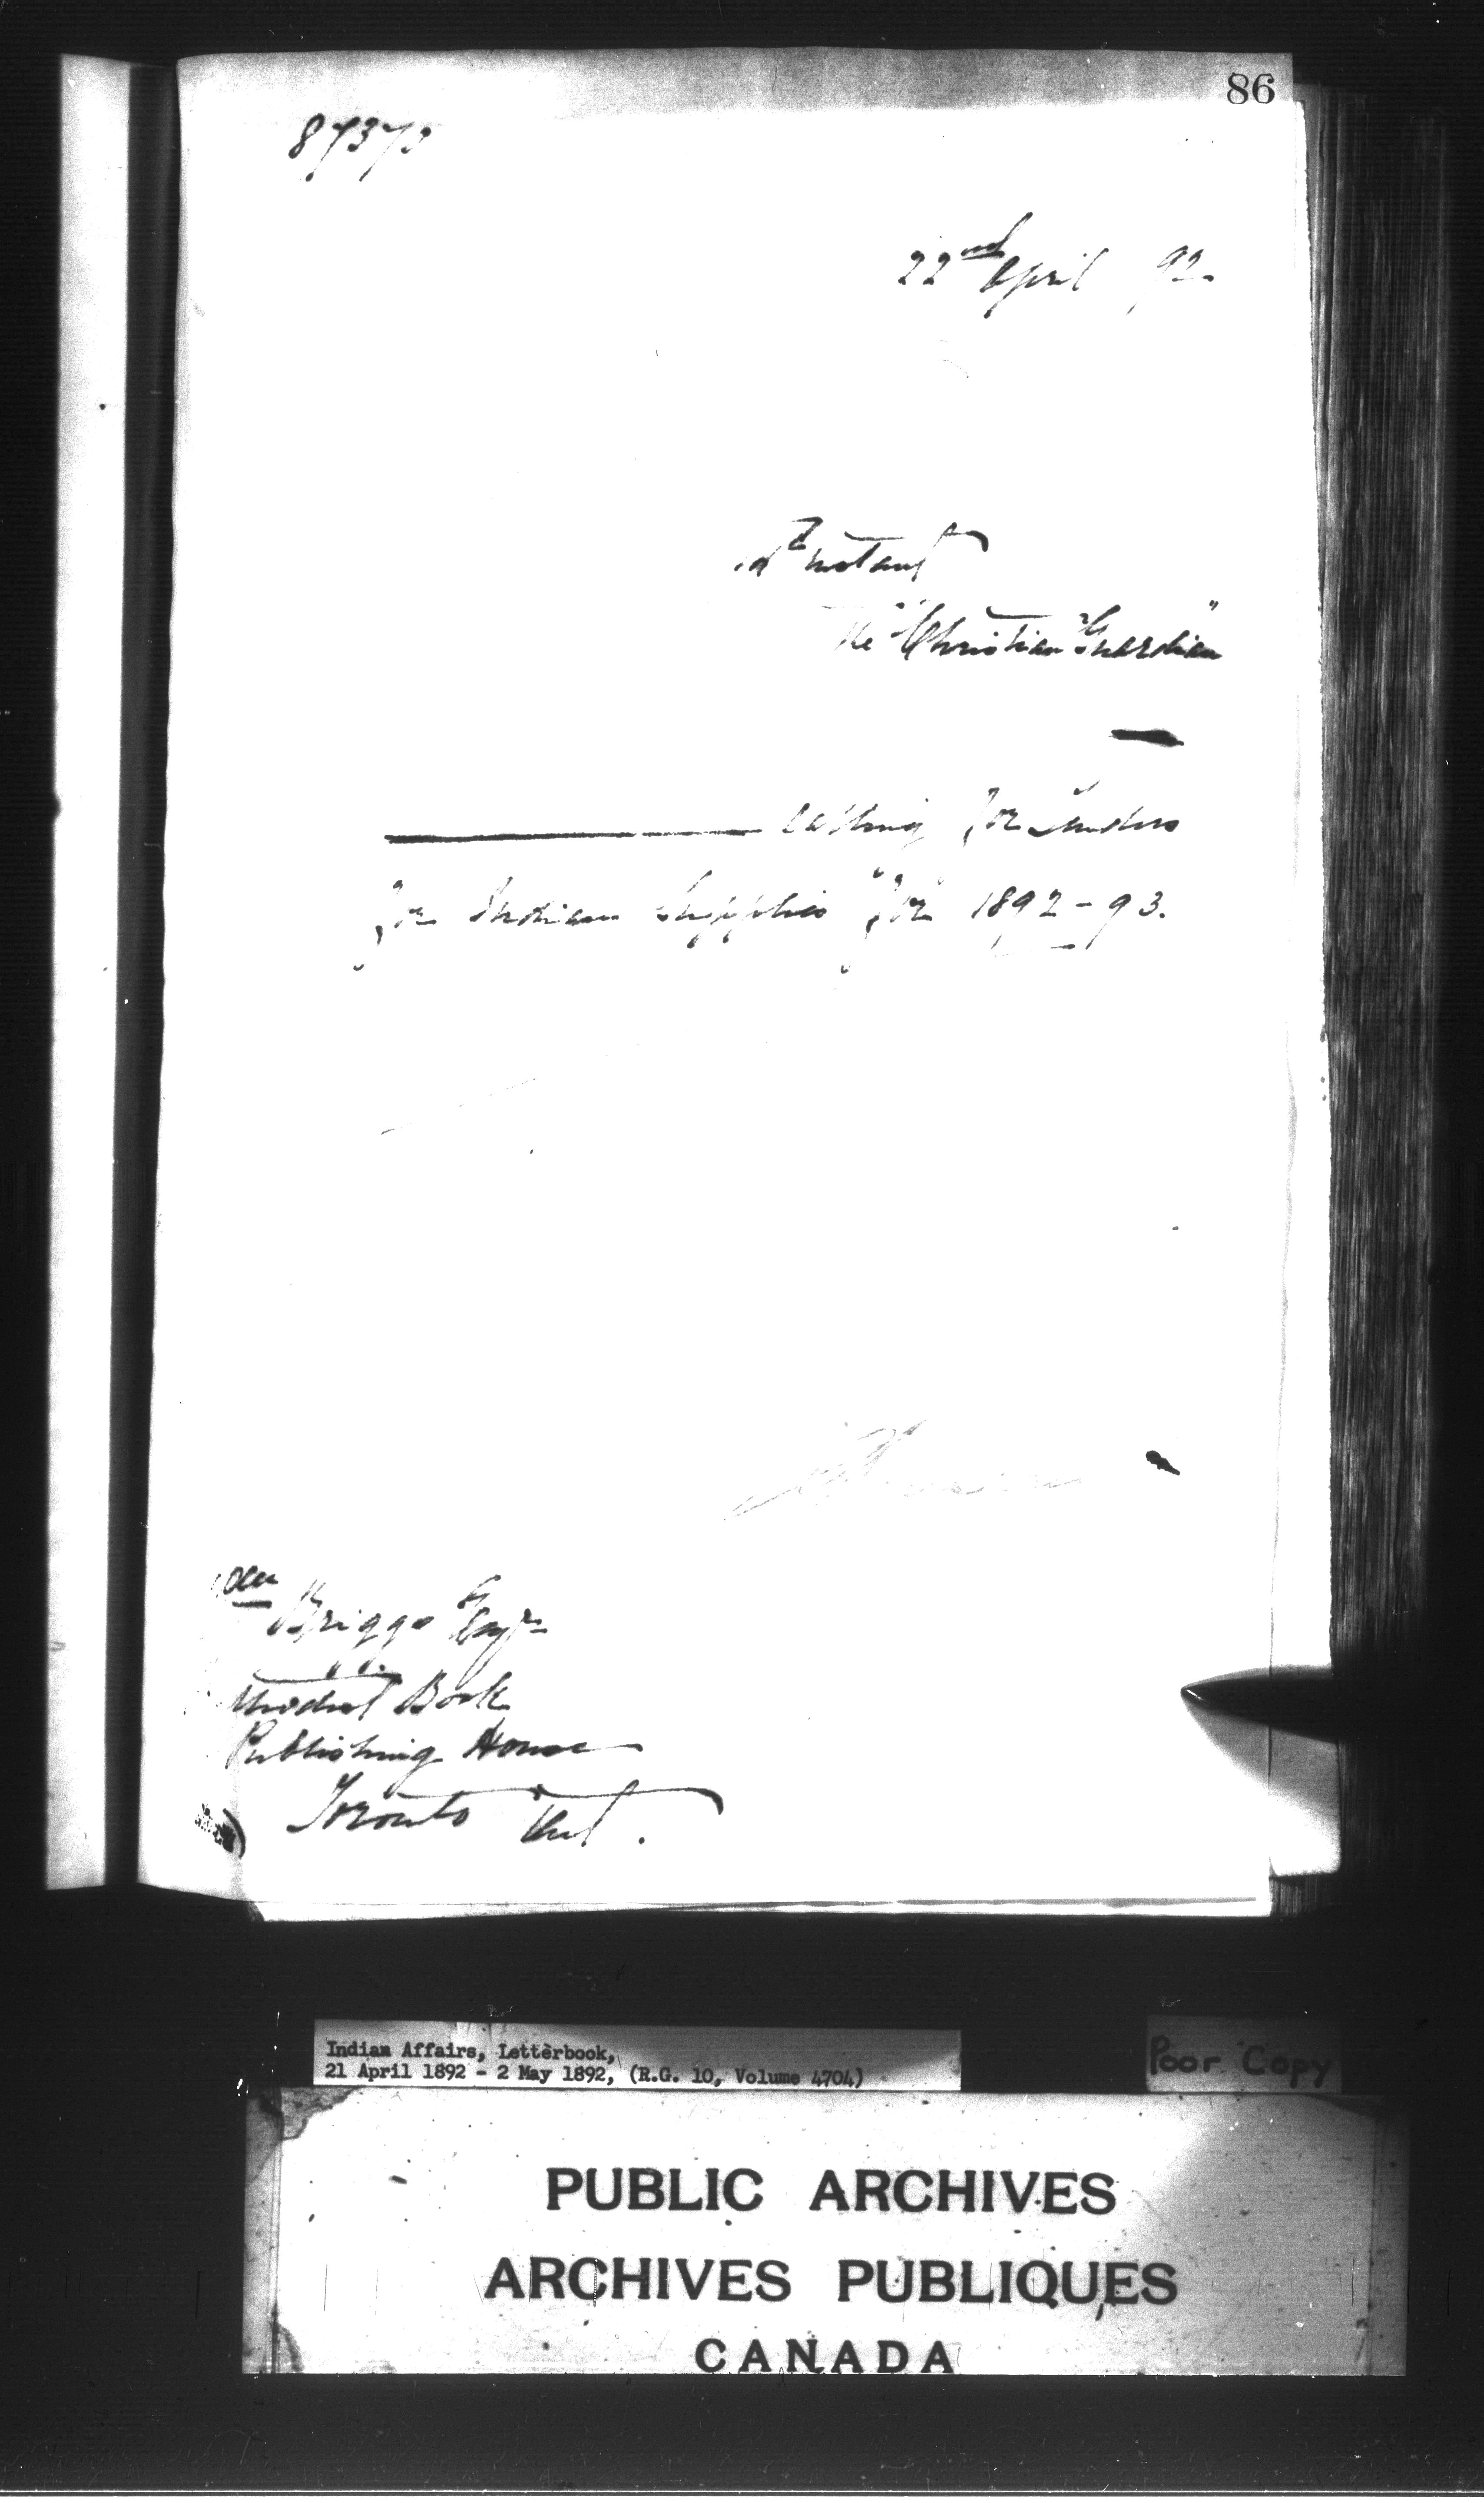 86
22nd April 92.
Instant
The "Christian Guardian"
calling for Tenders
for Indian Supplies for 1892-93.
Wm Briggs Esqr
Methodist Book
Publishing House
Toronto Ont.
Indian Affairs, Letterbook,
21 April 1892 - 2 May 1892, (R.G. 10, Volume 4704)
Poor Copy
PUBLIC ARCHIVES
ARCHIVES PUBLIQUES
CANADA